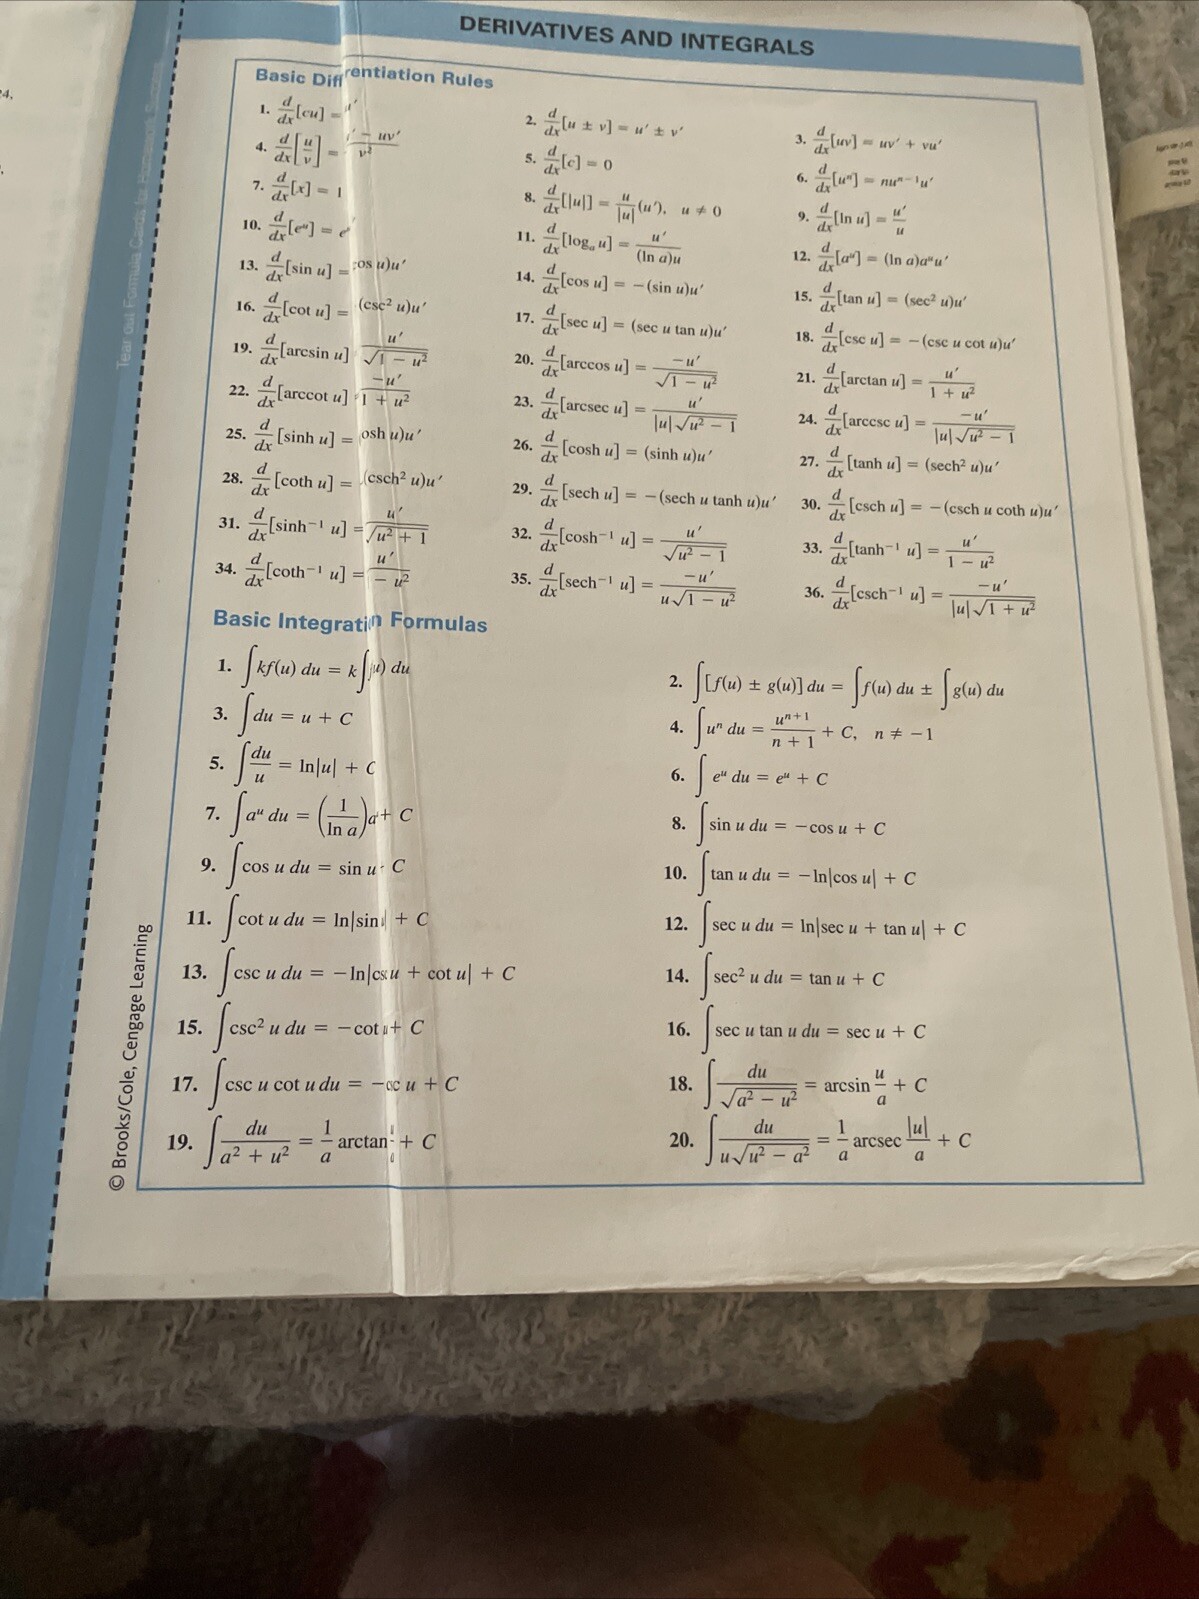 DERIVATIVES AND INTEGRALS
Basic Diff rentiation Rules
1. d/dx[cu] = u′
2. d/dx[u ± v] = u′ ± v′
3. d/dx[uv] = uv′ + vu′
4. d/dx[u/v] = ′ − uv′/v²
5. d/dx[c] = 0
6. d/dx[uⁿ] = nuⁿ⁻¹u′
7. d/dx[x] = 1
8. d/dx[|u|] = u/|u|(u′), u ≠ 0
9. d/dx[ln u] = u′/u
10. d/dx[eᵘ] = e
11. d/dx[logₐ u] = u′/(ln a)u
12. d/dx[aᵘ] = (ln a)aᵘu′
13. d/dx[sin u] = os u)u′
14. d/dx[cos u] = −(sin u)u′
15. d/dx[tan u] = (sec² u)u′
16. d/dx[cot u] = (csc² u)u′
17. d/dx[sec u] = (sec u tan u)u′
18. d/dx[csc u] = −(csc u cot u)u′
19. d/dx[arcsin u] u′/√(1 − u²)
20. d/dx[arccos u] = −u′/√(1 − u²)
21. d/dx[arctan u] = u′/(1 + u²)
22. d/dx[arccot u] −u′/(1 + u²)
23. d/dx[arcsec u] = u′/(|u|√(u² − 1))
24. d/dx[arccsc u] = −u′/(|u|√(u² − 1))
25. d/dx[sinh u] = osh u)u′
26. d/dx[cosh u] = (sinh u)u′
27. d/dx[tanh u] = (sech² u)u′
28. d/dx[coth u] = (csch² u)u′
29. d/dx[sech u] = −(sech u tanh u)u′
30. d/dx[csch u] = −(csch u coth u)u′
31. d/dx[sinh⁻¹ u] = u′/√(u² + 1)
32. d/dx[cosh⁻¹ u] = u′/√(u² − 1)
33. d/dx[tanh⁻¹ u] = u′/(1 − u²)
34. d/dx[coth⁻¹ u] = u′/( − u²)
35. d/dx[sech⁻¹ u] = −u′/(u√(1 − u²))
36. d/dx[csch⁻¹ u] = −u′/(|u|√(1 + u²))
Basic Integrati n Formulas
1. ∫kf(u) du = k∫ u) du
2. ∫[f(u) ± g(u)] du = ∫f(u) du ± ∫g(u) du
3. ∫du = u + C
4. ∫uⁿ du = uⁿ⁺¹/(n + 1) + C, n ≠ −1
5. ∫du/u = ln|u| + C
6. ∫eᵘ du = eᵘ + C
7. ∫aᵘ du = (1/ln a)a + C
8. ∫sin u du = −cos u + C
9. ∫cos u du = sin u C
10. ∫tan u du = −ln|cos u| + C
11. ∫cot u du = ln|sin | + C
12. ∫sec u du = ln|sec u + tan u| + C
13. ∫csc u du = −ln|cs u + cot u| + C
14. ∫sec² u du = tan u + C
15. ∫csc² u du = −cot u + C
16. ∫sec u tan u du = sec u + C
17. ∫csc u cot u du = − c u + C
18. ∫du/√(a² − u²) = arcsin u/a + C
19. ∫du/(a² + u²) = 1/a arctan + C
20. ∫du/(u√(u² − a²)) = 1/a arcsec |u|/a + C
© Brooks/Cole, Cengage Learning
Tear out Formula Cards for Homework Success